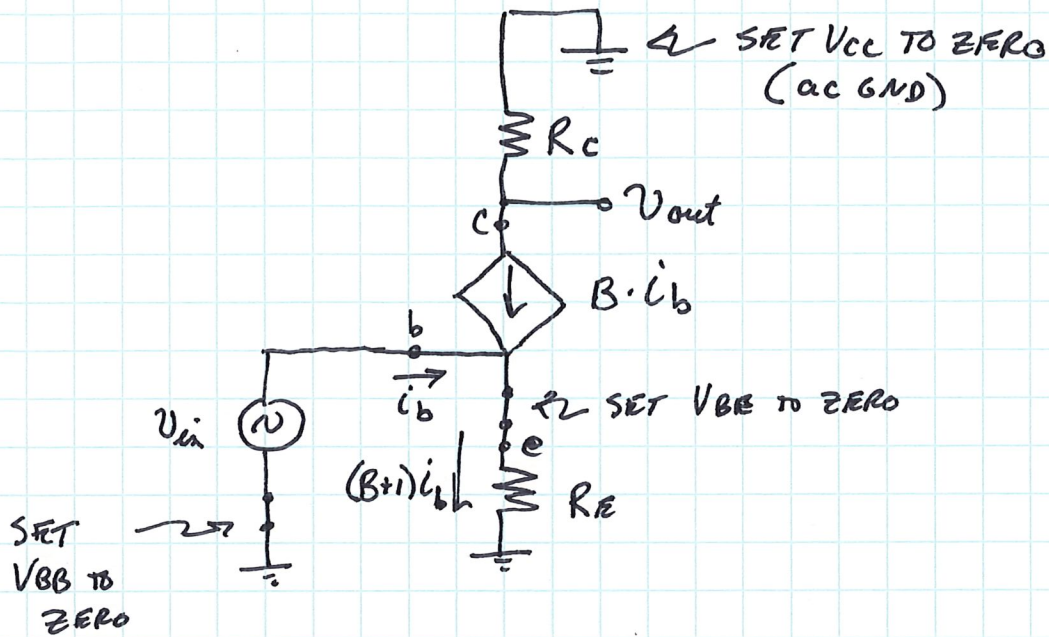 SET VCC TO ZERO
(ac GND)
RC
Vout
C
B·ib
b
ib
SET VBE TO ZERO
Vin
e
(B+1)ib
RE
SET
VBB TO
ZERO